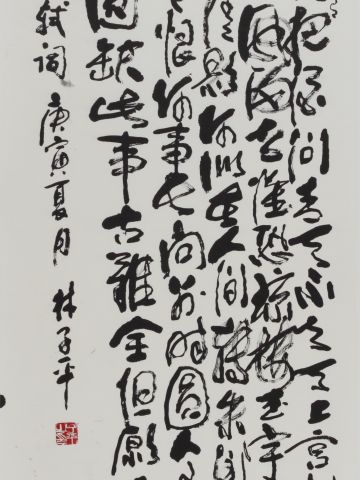 把酒问青天不知天上宫
归去唯恐琼楼玉宇
清影何似在人间转朱
恨何事长向别时圆人
圆缺此事古难全但愿
轼词 庚寅夏月 林子平